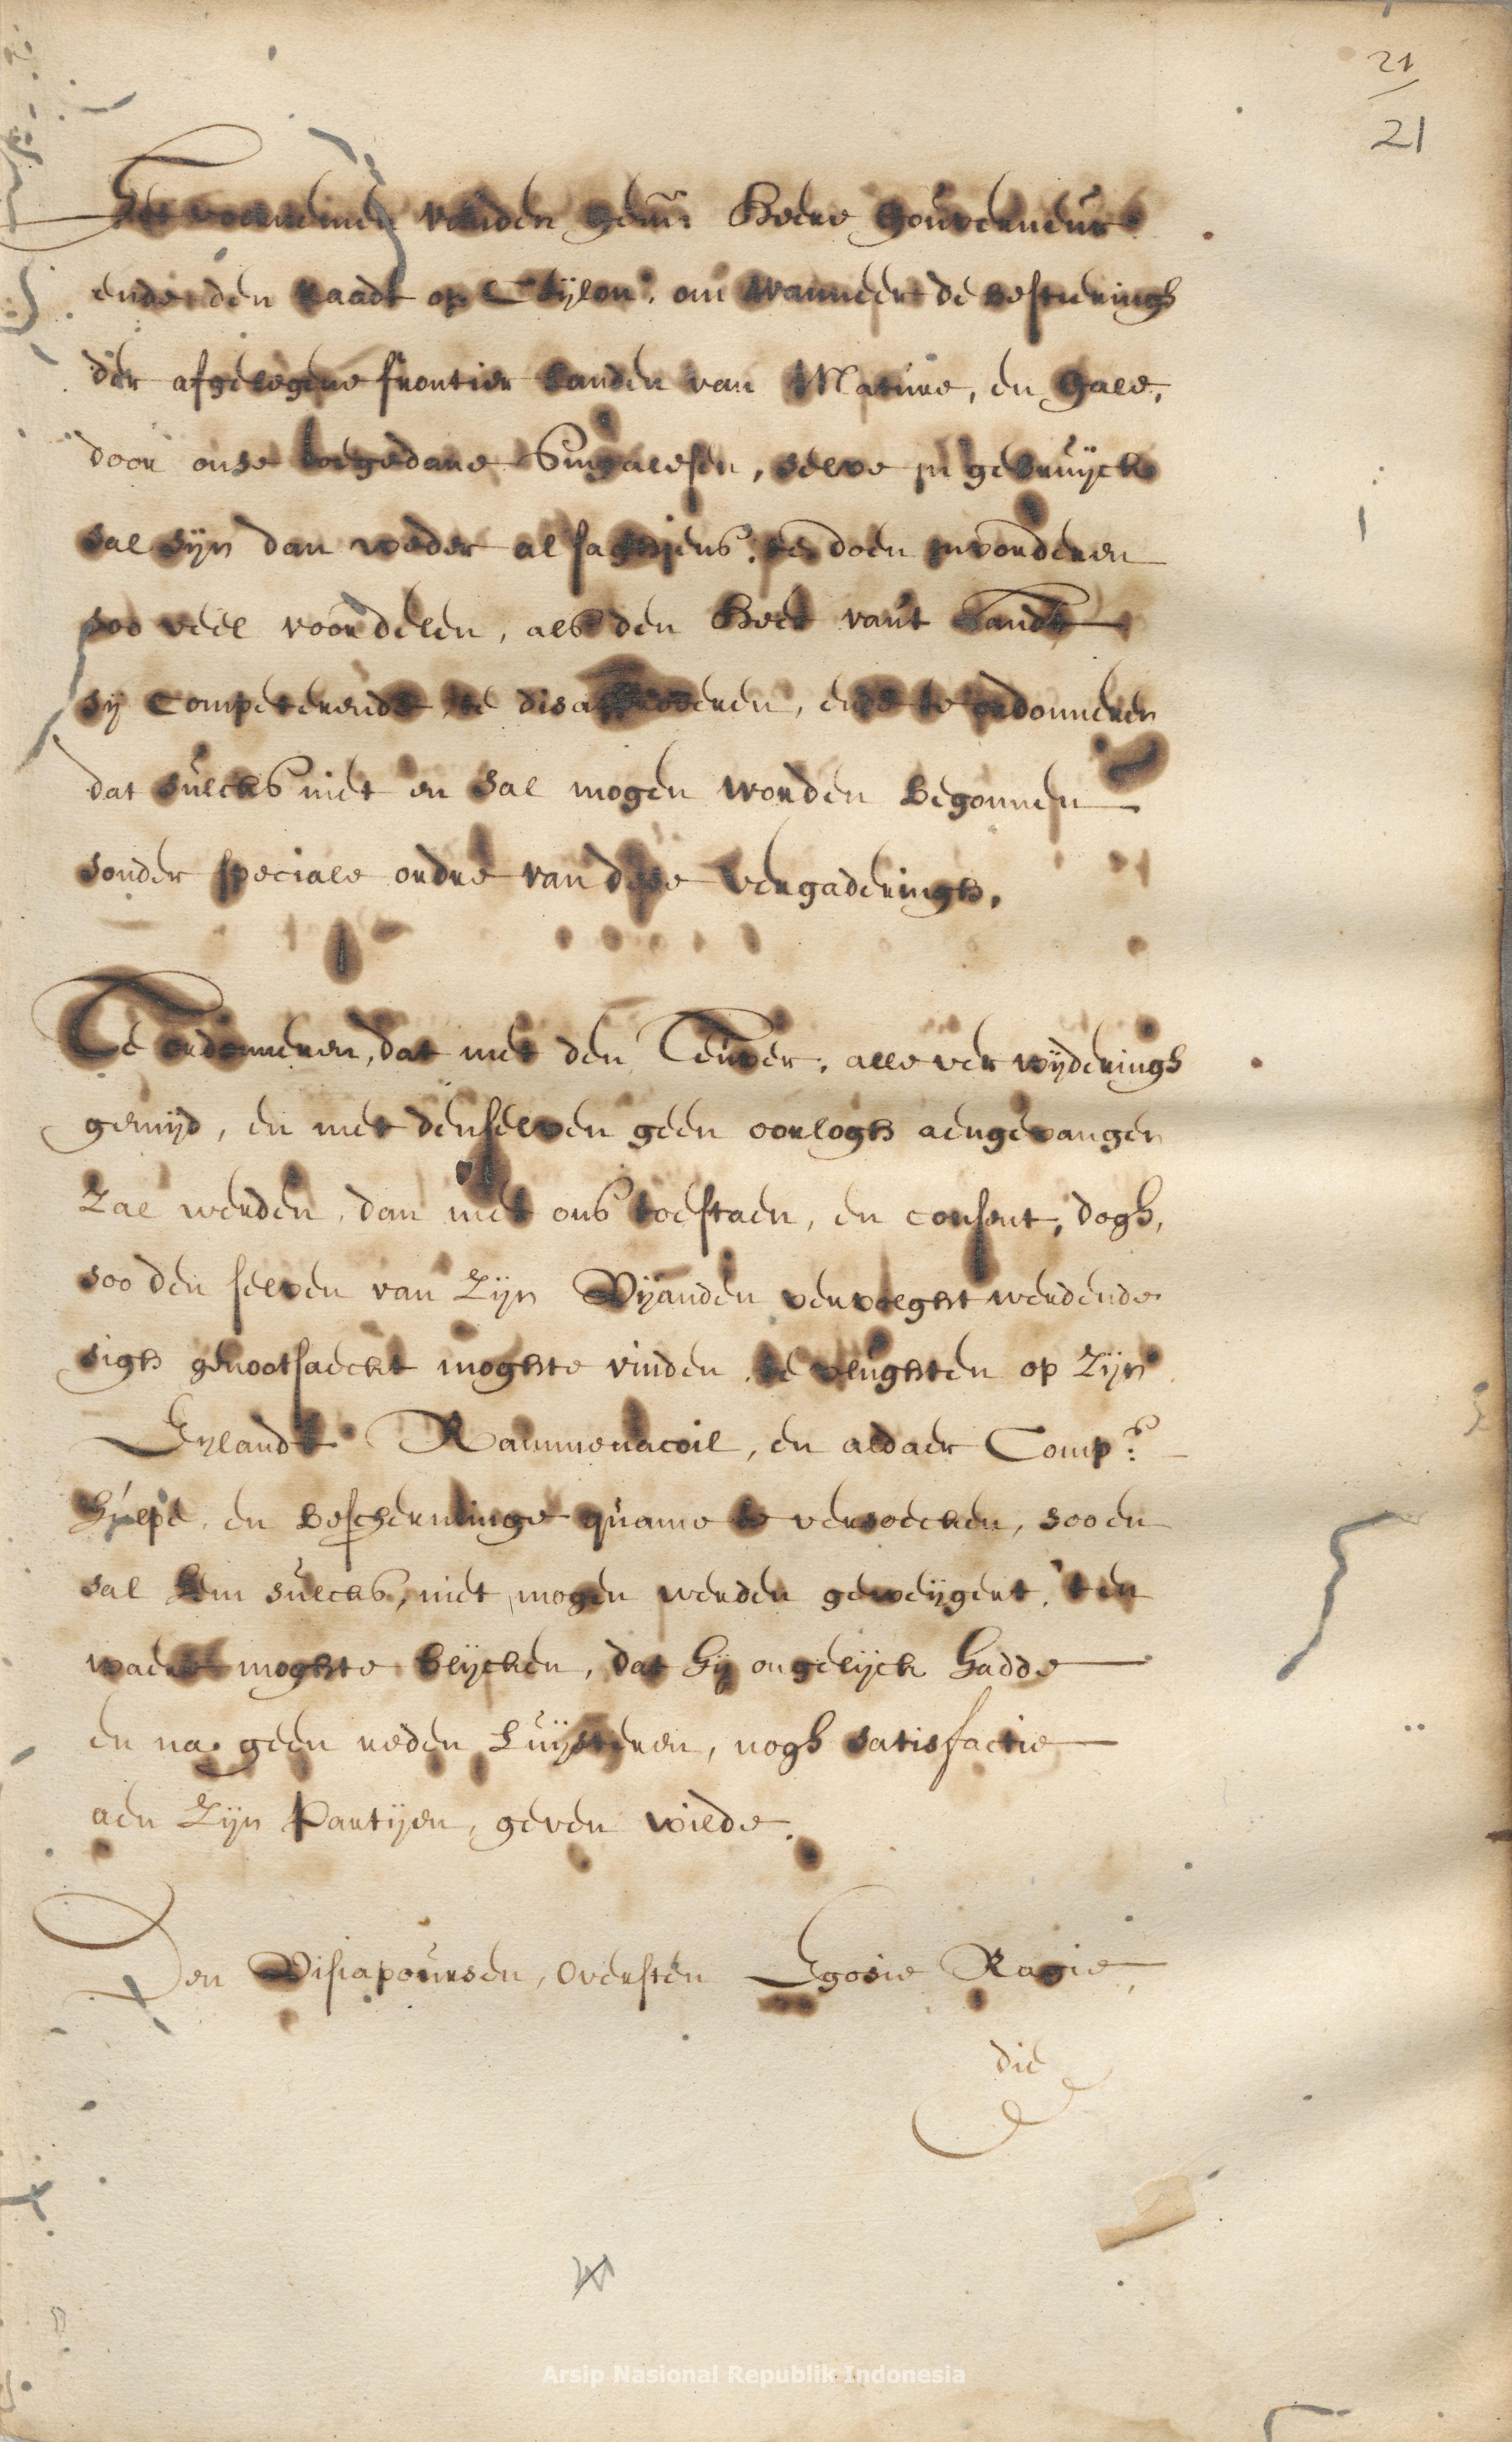 21
21
Het voornemen vanden gem: Heere Gouverneur
ende den Raadt op Ceijlon, om wanneer de bestieringh
der afgelegene frontier landen van Mature, en Gale,
door onse toegedane Singalesen, selve in gebruijck
sal sijn dan weder alsachjens te doen invorderen
soo veel voordelen, als den Heer van't Landt
sij Competerende, te disapproberen, ende te ordonneren
dat sulcks niet en sal mogen worden begonnen
sonder speciale ordre van dese vergaderingh.
Te ordonneren, dat met den Teuver, alle verwijderingh
gemijd, en met denselven geen oorlogh aengevangen
zal werden, dan met ons toestaen, en consent, dogh,
soo den selven van zijn Vijanden vervolght werdende
sigh genootsaeckt moghte vinden te vlughten op zijn
Eylandt Rammenacoil, en aldaer Comp:s
hulpe, en bescherminge quame te versoecken, soo en
sal hem sulcks, niet mogen werden geweijgert, 't en
waere moghte blijcken, dat hij ongelijck hadde
en na geen reden luijsteren, nogh satisfactie
aen zijn Partijen, geven wilde.
Den Visiapoursen, Oversten Egosie Ragie,
die
Arsip Nasional Republik Indonesia